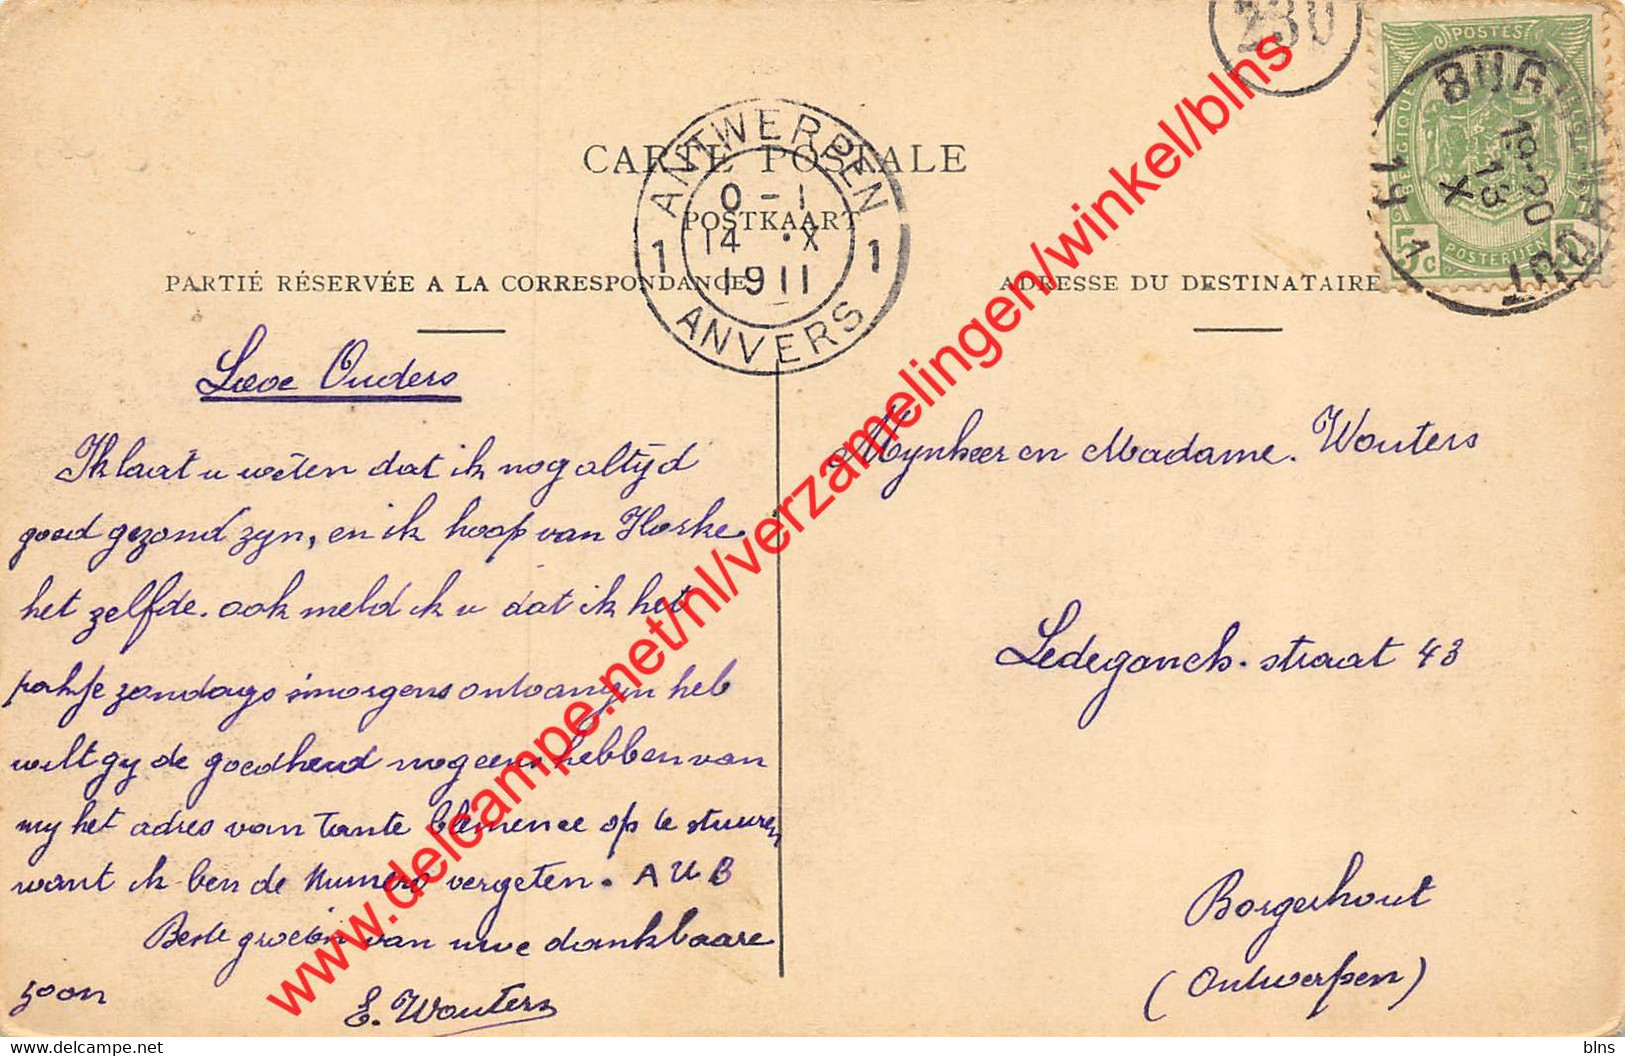 230
POSTES
BELGIQUE
BELGIE
5c 5c
POSTERIJEN
BORGERHOUT
19-20
13
X
11
CARTE POSTALE
POSTKAART
ANTWERPEN
0-1
1 14 X 1
1911
ANVERS
PARTIE RÉSERVÉE A LA CORRESPONDANCE
ADRESSE DU DESTINATAIRE
Lieve Ouders
Ik laat u weten dat ik nog altyd
goed gezond zyn, en ik hoop van
het zelfde. ook meld ik u dat ik het
pakje zondags smorgens ontvangen heb
wilt gy de goedheid nog eens hebben van
my het adres van Tante Clemence op te stuuren
want ik ben de Numero vergeten. A U B
Beste groeten van uwe dankbaare
zoon
E. Wouters
Mynheer en Madame. Wouters
Ledeganck-straat 43
Borgerhout
(Antwerpen)
www.delcampe.net/nl/verzamelingen/winkel/blns
delcampe.net
blns